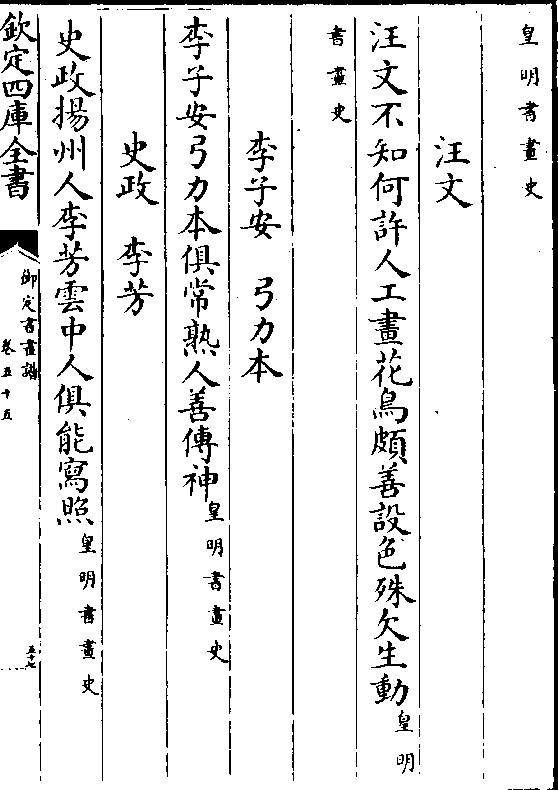 皇明書畫史
汪文
汪文不知何許人工畫花鳥頗善設色殊欠生動皇明
書畫史
李子安　弓力本
李子安弓力本俱常熟人善傳神皇明書畫史
史政　李芳
史政揚州人李芳雲中人俱能寫照皇明書畫史
欽定四庫全書
御定書畫譜
卷五十五
五十七